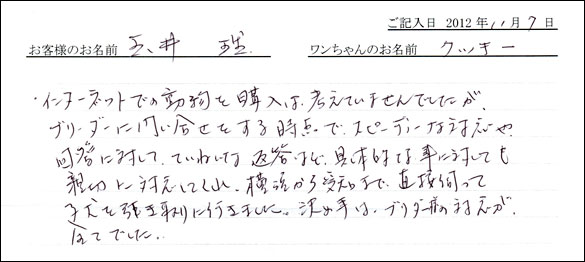 ご記入日 2012年11月7日
お客様のお名前 玉井 ワンちゃんのお名前 クッキー
・インターネットでの動物を購入は、考えていませんでしたが、
ブリーダーに問い合せをする時点で、スピーディーな対応や
回答に対して、ていねいな返答など、具体的な事に対しても
親切に対応してくれ、横浜から愛知まで、直接伺って
子犬を引き取りに行きました。決め手は、ブリーダー様の対応が、
全てでした。